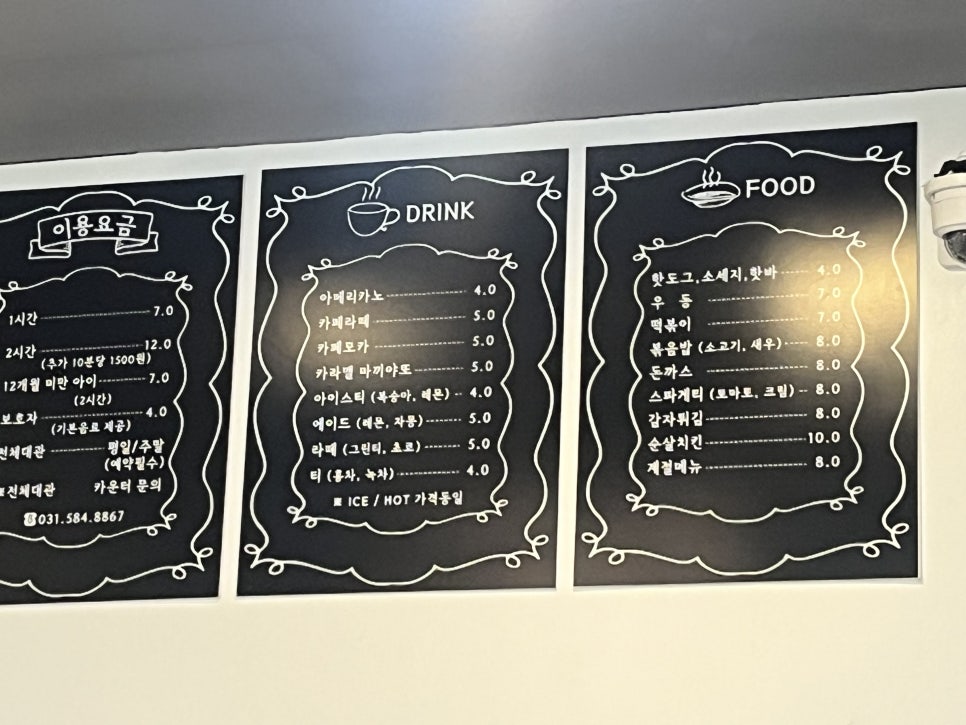 이용요금
1시간 7.0
2시간 12.0
(추가 10분당 1500원)
12개월 미만 아이 7.0
(2시간)
보호자 4.0
(기본음료 제공)
전체대관 평일/주말
(예약필수)
※전체대관 카운터 문의
☎031.584.8867
DRINK
아메리카노 4.0
카페라떼 5.0
카페모카 5.0
카라멜 마끼야또 5.0
아이스티 (복숭아, 레몬) 4.0
에이드 (레몬, 자몽) 5.0
라떼 (그린티, 초코) 5.0
티 (홍차, 녹차) 4.0
※ ICE / HOT 가격동일
FOOD
핫도그,소세지,핫바 4.0
우 동 7.0
떡볶이 7.0
볶음밥 (소고기, 새우) 8.0
돈까스 8.0
스파게티 (토마토, 크림) 8.0
감자튀김 8.0
순살치킨 10.0
계절메뉴 8.0